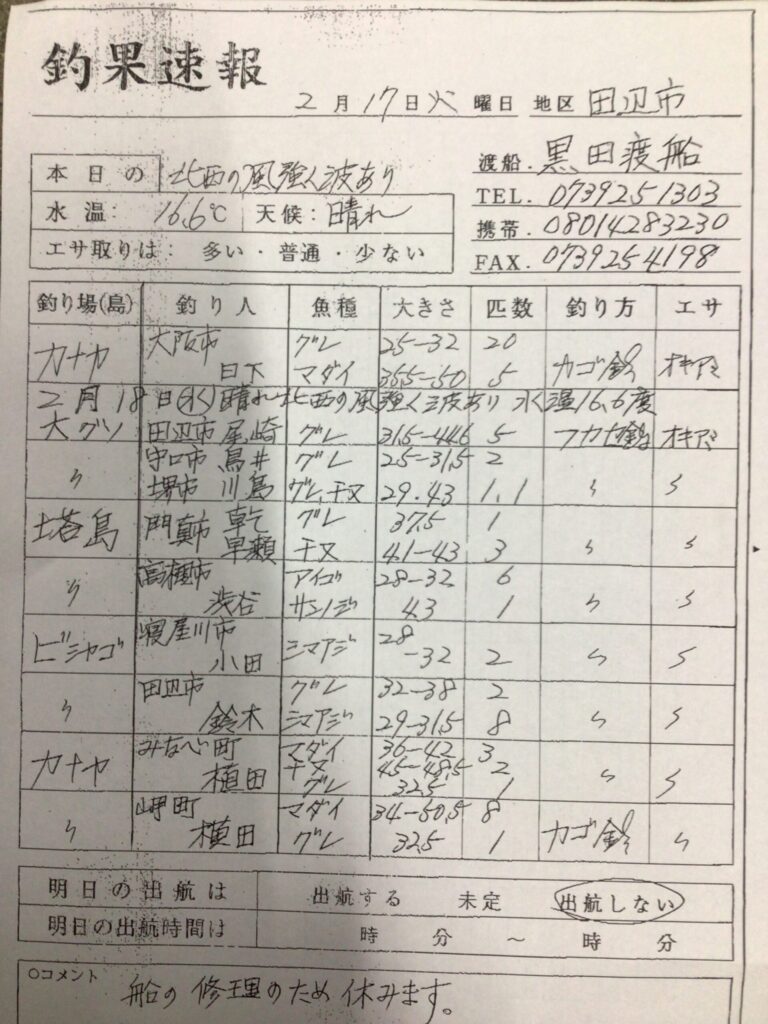 釣果速報
2月17日火曜日 地区 田辺市
渡船. 黒田渡船
本日の 北西の風強く波あり
TEL. 0739251303
水温: 16.6℃ 天候: 晴れ
携帯. 08014283230
エサ取りは: 多い・普通・少ない
FAX. 0739254198
釣り場(島) 釣り人 魚種 大きさ 匹数 釣り方 エサ
大阪市 グレ 25-32 20
カナヤ 日下 マダイ 35.5-50 5 カゴ釣 オキアミ
2月18日(水)晴れ 北西の風強く波あり 水温16.6度
大グソ 田辺市 尾崎 グレ 31.5-44.6 5 フカセ釣 オキアミ
守口市 鳥井 グレ 25-31.5 2
〃 堺市 川島 グレ,チヌ 29.43 1.1 〃 〃
塔島 門真市 乾 グレ 37.5 1
早瀬 チヌ 41-43 3 〃 〃
高槻市 アイゴ 28-32 6
〃 渋谷 サンノジ 43 1 〃 〃
ビシャゴ 寝屋川市 シマアジ 28
小田 -32 2 〃 〃
田辺市 グレ 32-38 2
〃 鈴木 シマアジ 29-31.5 8 〃 〃
みなべ町 マダイ 36-42 3
カナヤ 植田 チヌ 45-48.5 2 〃 〃
グレ 32.5 1
岬町 マダイ 34-50.5 8
〃 横田 グレ 32.5 1 カゴ釣 〃
明日の出航は 出航する 未定 出航しない
明日の出航時間は 時 分 ~ 時 分
○コメント
船の修理のため休みます。